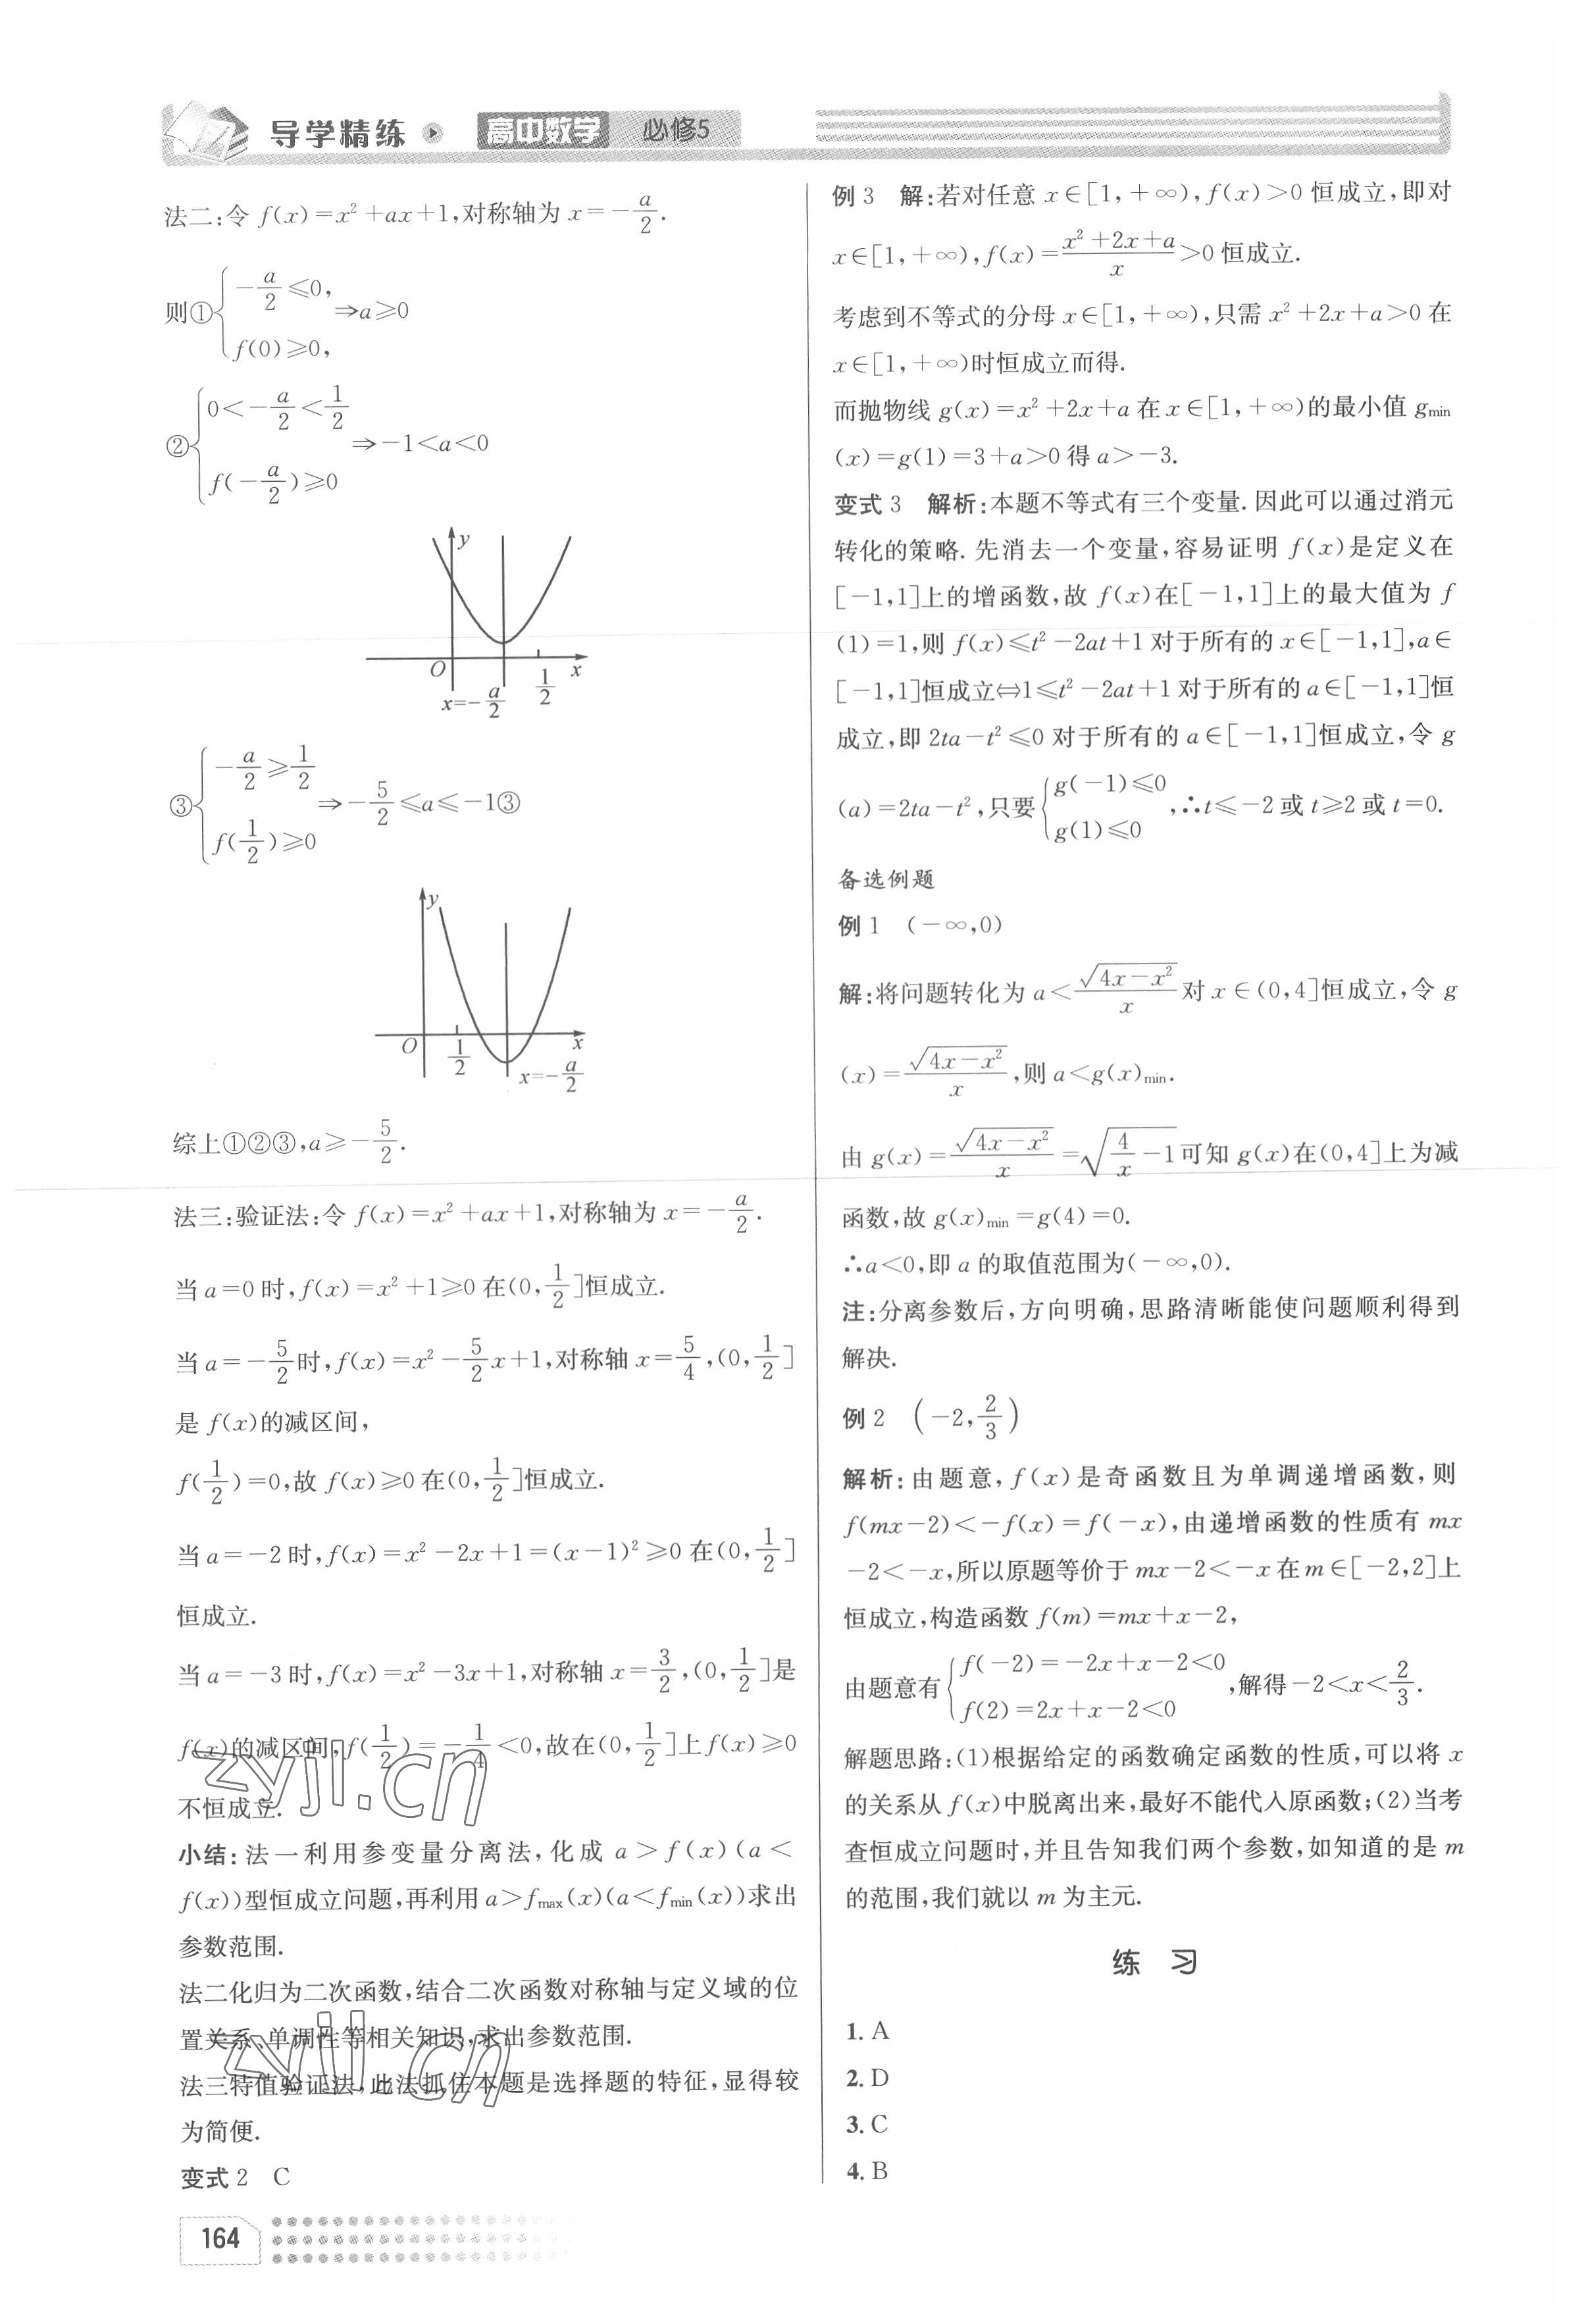 导学精练 高中数学 必修5
法二:令 f(x)=x²+ax+1,对称轴为 x=-a/2.
则①{-a/2≤0, f(0)≥0, ⇒a≥0
②{0<-a/2<1/2 f(-a/2)≥0 ⇒-1<a<0
y
O
x=-a/2
1/2
x
③{-a/2≥1/2 f(1/2)≥0 ⇒-5/2≤a≤-1③
y
O
1/2
x
x=-a/2
综上①②③,a≥-5/2.
法三:验证法:令 f(x)=x²+ax+1,对称轴为 x=-a/2.
当 a=0 时,f(x)=x²+1≥0 在(0,1/2]恒成立.
当 a=-5/2时,f(x)=x²-5/2x+1,对称轴 x=5/4,(0,1/2]
是 f(x)的减区间,
f(1/2)=0,故 f(x)≥0 在(0,1/2]恒成立.
当 a=-2 时,f(x)=x²-2x+1=(x-1)²≥0 在(0,1/2]
恒成立.
当 a=-3 时,f(x)=x²-3x+1,对称轴 x=3/2,(0,1/2]是
f(x)的减区间,f(1/2)=-1/4<0,故在(0,1/2]上 f(x)≥0
不恒成立.
zyjl.cn
小结:法一利用参变量分离法,化成 a>f(x)(a<
f(x))型恒成立问题,再利用 a>fmax(x)(a<fmin(x))求出
参数范围.
法二化归为二次函数,结合二次函数对称轴与定义域的位
置关系、单调性等相关知识,求出参数范围.
法三特值验证法,此法抓住本题是选择题的特征,显得较
为简便.
zyjl.cn
变式 2 C
例 3 解:若对任意 x∈[1,+∞),f(x)>0 恒成立,即对
x∈[1,+∞),f(x)=(x²+2x+a)/x>0 恒成立.
考虑到不等式的分母 x∈[1,+∞),只需 x²+2x+a>0 在
x∈[1,+∞)时恒成立而得.
而抛物线 g(x)=x²+2x+a 在 x∈[1,+∞)的最小值 gmin
(x)=g(1)=3+a>0 得 a>-3.
变式 3 解析:本题不等式有三个变量.因此可以通过消元
转化的策略.先消去一个变量,容易证明 f(x)是定义在
[-1,1]上的增函数,故 f(x)在[-1,1]上的最大值为 f
(1)=1,则 f(x)≤t²-2at+1 对于所有的 x∈[-1,1],a∈
[-1,1]恒成立⇔1≤t²-2at+1 对于所有的 a∈[-1,1]恒
成立,即 2ta-t²≤0 对于所有的 a∈[-1,1]恒成立,令 g
(a)=2ta-t²,只要{g(-1)≤0 g(1)≤0,∴t≤-2 或 t≥2 或 t=0.
备选例题
例 1 (-∞,0)
解:将问题转化为 a<√(4x-x²)/x 对 x∈(0,4]恒成立,令 g
(x)=√(4x-x²)/x,则 a<g(x)min.
由 g(x)=√(4x-x²)/x=√(4/x-1)可知 g(x)在(0,4]上为减
函数,故 g(x)min=g(4)=0.
∴a<0,即 a 的取值范围为(-∞,0).
注:分离参数后,方向明确,思路清晰能使问题顺利得到
解决.
例 2 (-2,2/3)
解析:由题意,f(x)是奇函数且为单调递增函数,则
f(mx-2)<-f(x)=f(-x),由递增函数的性质有 mx
-2<-x,所以原题等价于 mx-2<-x 在 m∈[-2,2]上
恒成立,构造函数 f(m)=mx+x-2,
由题意有{f(-2)=-2x+x-2<0 f(2)=2x+x-2<0,解得-2<x<2/3.
解题思路:(1)根据给定的函数确定函数的性质,可以将 x
的关系从 f(x)中脱离出来,最好不能代入原函数;(2)当考
查恒成立问题时,并且告知我们两个参数,如知道的是 m
的范围,我们就以 m 为主元.
练 习
1. A
2. D
3. C
4. B
164